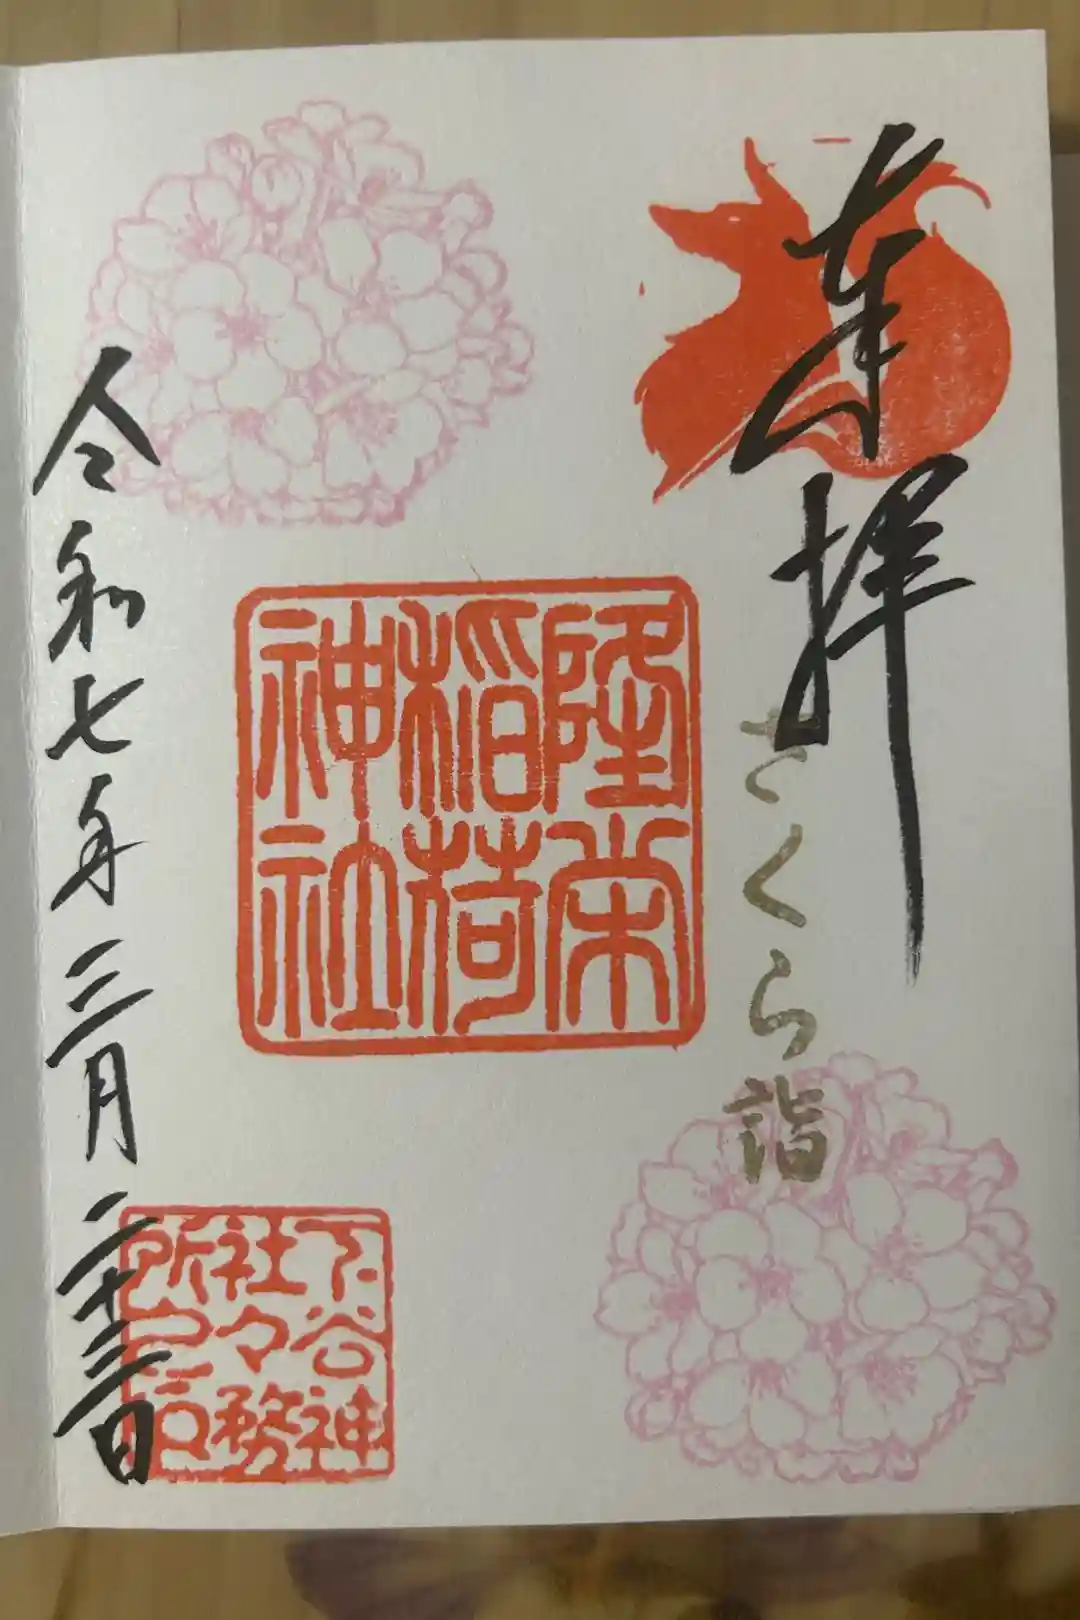 奉拝
さくら詣
隆栄
稲荷
神社
下谷神
社々務
所之印
令和七年三月二十三日